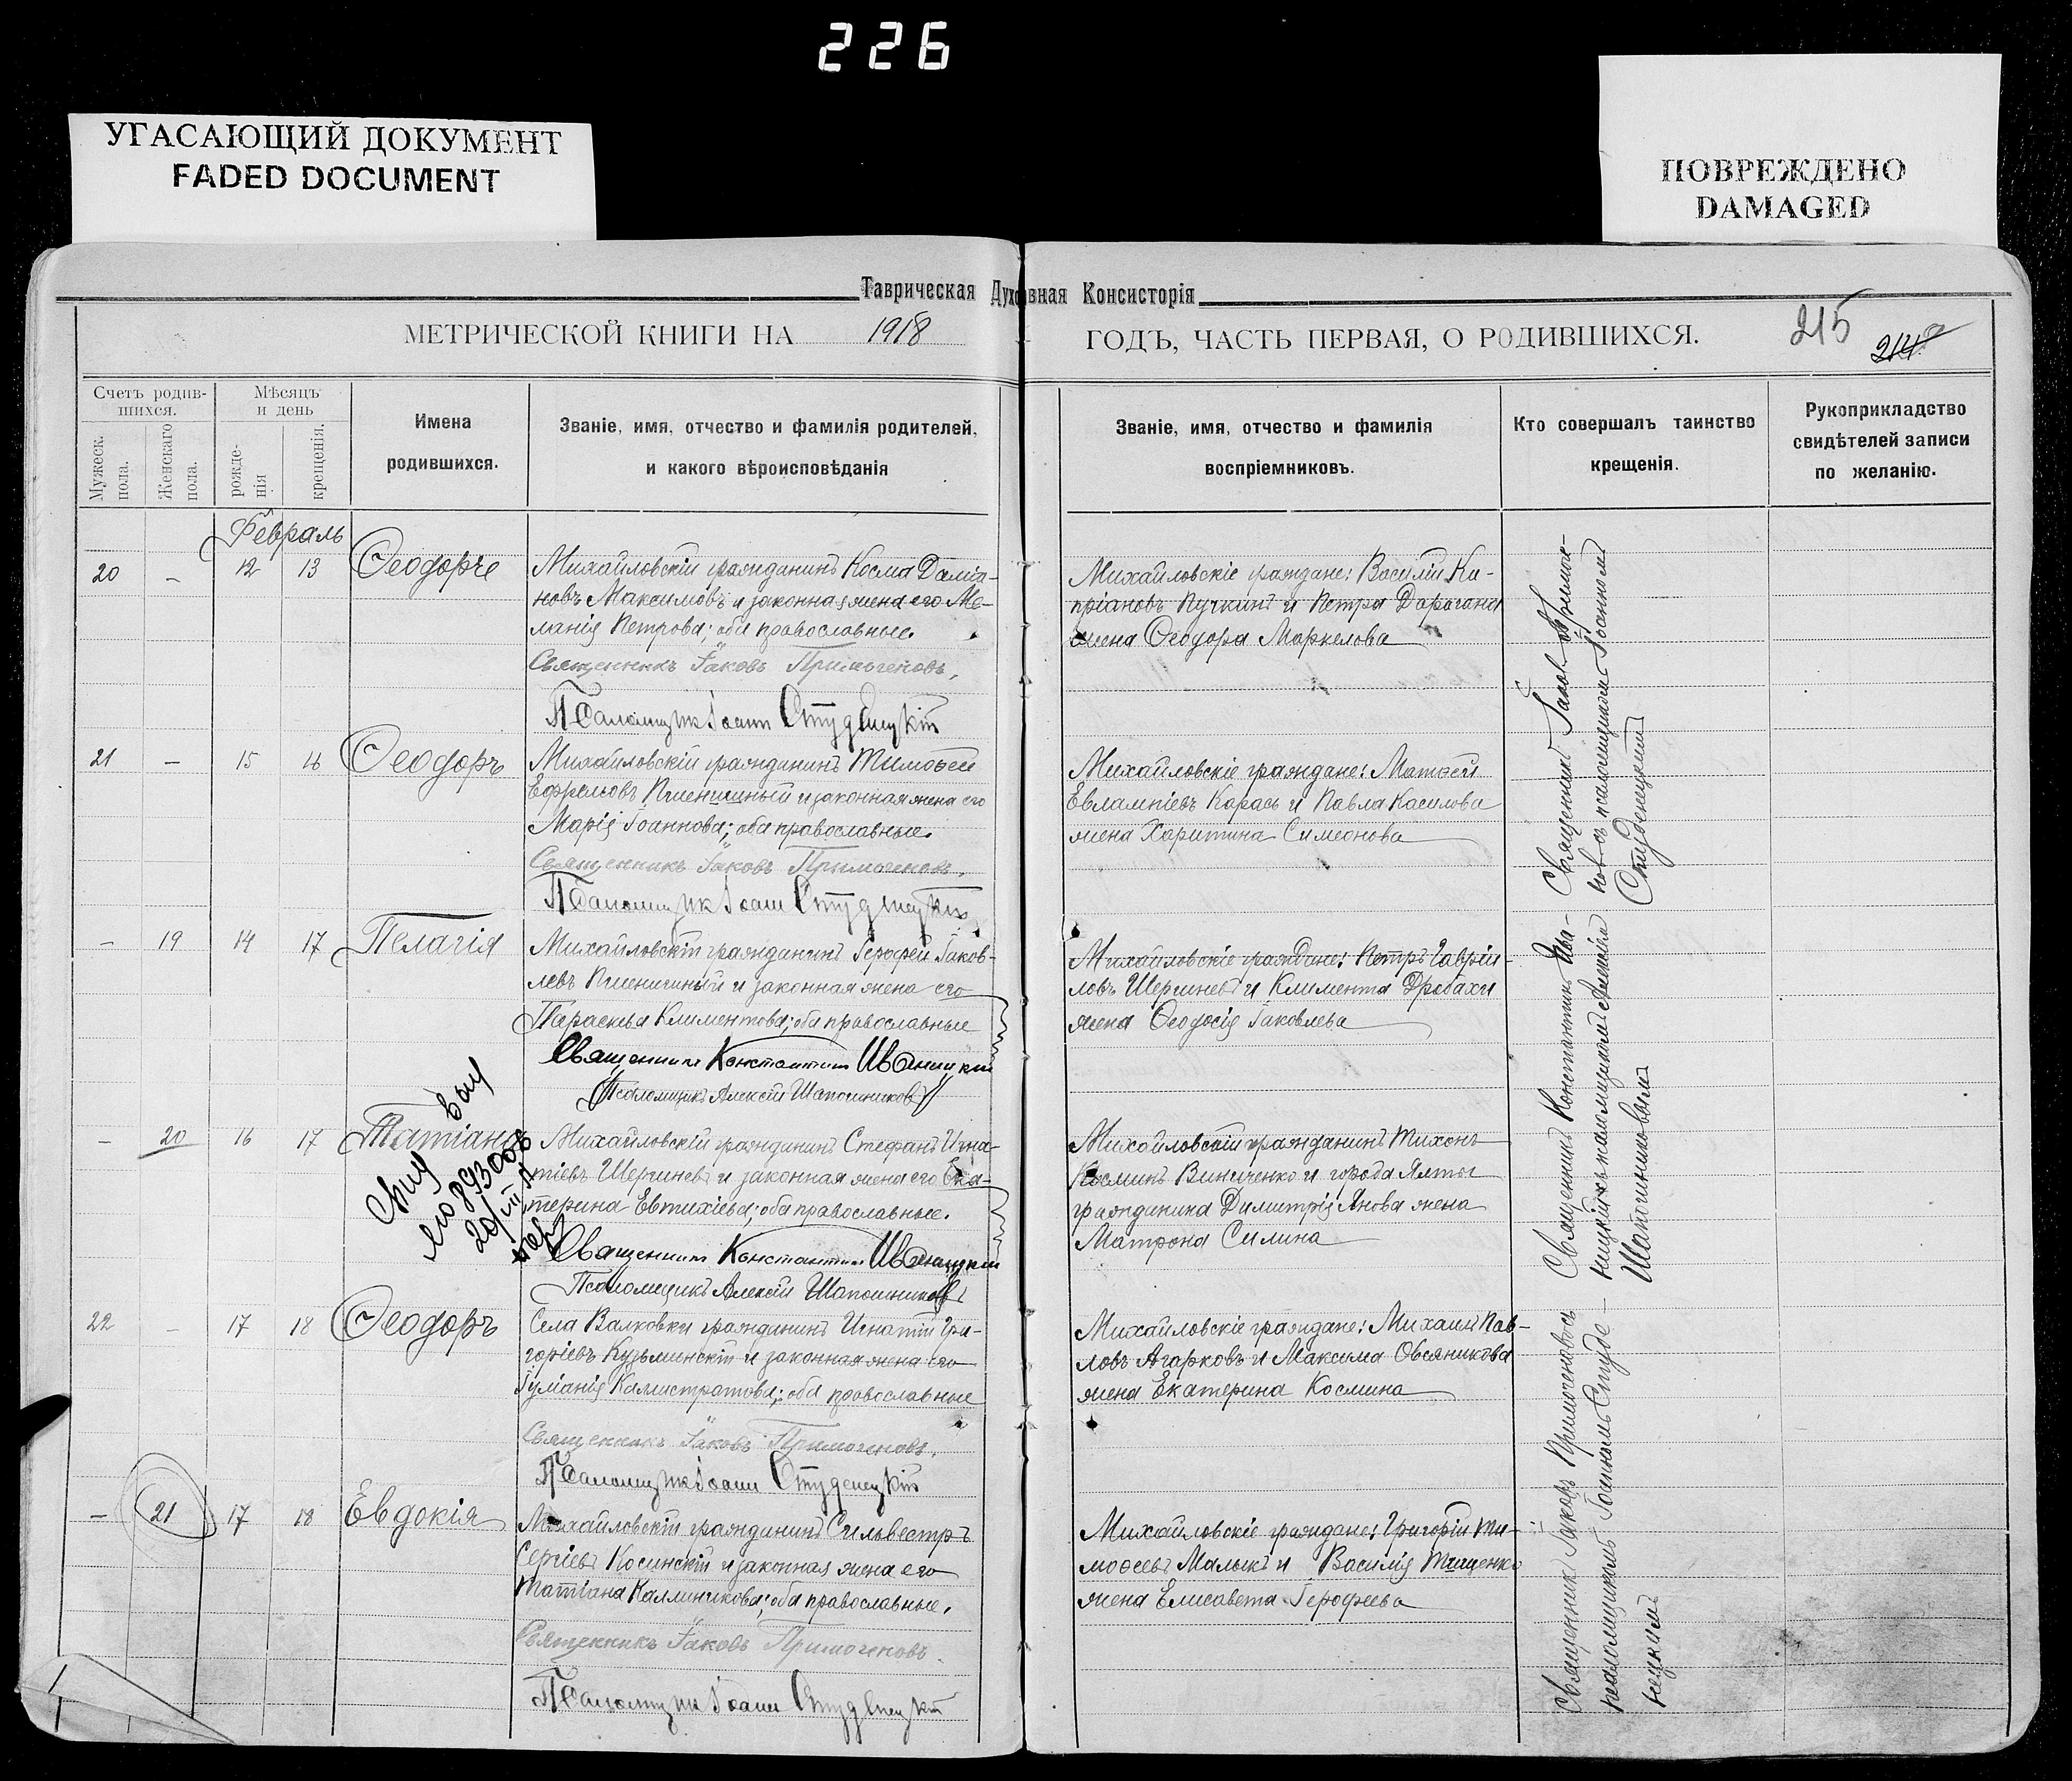 226
УГАСАЮЩИЙ ДОКУМЕНТ
FADED DOCUMENT
ПОВРЕЖДЕНО
DAMAGED
Таврическая Духовная Консисторія
МЕТРИЧЕСКОЙ КНИГИ НА 1918 ГОДЪ, ЧАСТЬ ПЕРВАЯ, О РОДИВШИХСЯ.
215
214
Счетъ родив-
шихся.
Мужеск.
пола.
Женскаго
пола.
Мѣсяцъ
и день
рожде-
нія
крещенія.
Имена
родившихся.
Званіе, имя, отчество и фамилія родителей,
и какого вѣроисповѣданія
Званіе, имя, отчество и фамилія
воспріемниковъ.
Кто совершалъ таинство
крещенія.
Рукоприкладство
свидѣтелей записи
по желанію.
Февраль
20 - 12 13 Ѳеодоръ
Михайловскій гражданинъ Косма Даміа-
новъ Максимовъ и законная жена его Ме-
ланія Петрова; оба православные.
Священникъ Іаковъ Примогеновъ.
Псаломщикъ Іоаннъ Студенецкій
Михайловскіе граждане: Василій Ки-
пріановъ Пучкинъ и Петра Дорагана
жена Ѳеодора Маркелова
21 - 15 16 Ѳеодоръ
Михайловскій гражданинъ Тимоѳей
Ефремовъ Пшеничный и законная жена его
Марія Іоаннова; оба православные.
Священникъ Іаковъ Примогеновъ.
Псаломщикъ Іоаннъ Студенецкій
Михайловскіе граждане: Матѳей
Евлампіевъ Карась и Павла Касилова
жена Харитина Симеонова
Священникъ Іаковъ Примоге-
новъ съ псаломщикомъ Іоанномъ
Студенецкимъ
- 19 14 17 Пелагія
Михайловскій гражданинъ Іероѳей Іаков-
левъ Пшеничный и законная жена его
Параскева Климентова; оба православные
Священникъ Константинъ Иваницкій
Псаломщикъ Алексій Шапошниковъ
Михайловскіе граждане: Петръ Гаврiи-
ловъ Шергиневъ и Климента Дробахи
жена Ѳеодосія Іаковлева
- 20 16 17 Татіана
Михайловскій гражданинъ Стефанъ Игна-
тіевъ Шергиневъ и законная жена его Ека-
терина Евтихіева; оба православные.
Священникъ Константинъ Иваницкій
Псаломщикъ Алексій Шапошниковъ
Михайловскій гражданинъ Тихонъ
Косминъ Виниченко и города Ялты
гражданина Димитрія Янова жена
Матрона Силина
Священникъ Константинъ Ива-
ницкій съ псаломщикомъ Алексіемъ
Шапошниковымъ
22 - 17 18 Ѳеодоръ
Села Валковки гражданинъ Игнатій Гри-
горіевъ Кузьминскій и законная жена его
Іуліанія Каллистратова; оба православные
Священникъ Іаковъ Примогеновъ.
Псаломщикъ Іоаннъ Студенецкій
Михайловскіе граждане: Михаилъ Пав-
ловъ Агарковъ и Максима Овсяникова
жена Екатерина Космина
- 21 17 18 Евдокія
Михайловскій гражданинъ Сильвестръ
Сергіевъ Косинскій и законная жена его
Татіана Каллиникова; оба православные.
Священникъ Іаковъ Примогеновъ.
Псаломщикъ Іоаннъ Студенецкій
Михайловскіе граждане: Григорій Ти-
моѳеевъ Малыкъ и Василія Тищенко
жена Елисавета Іероѳеева
Священникъ Іаковъ Примогеновъ съ
псаломщикомъ Іоанномъ Студе-
нецкимъ